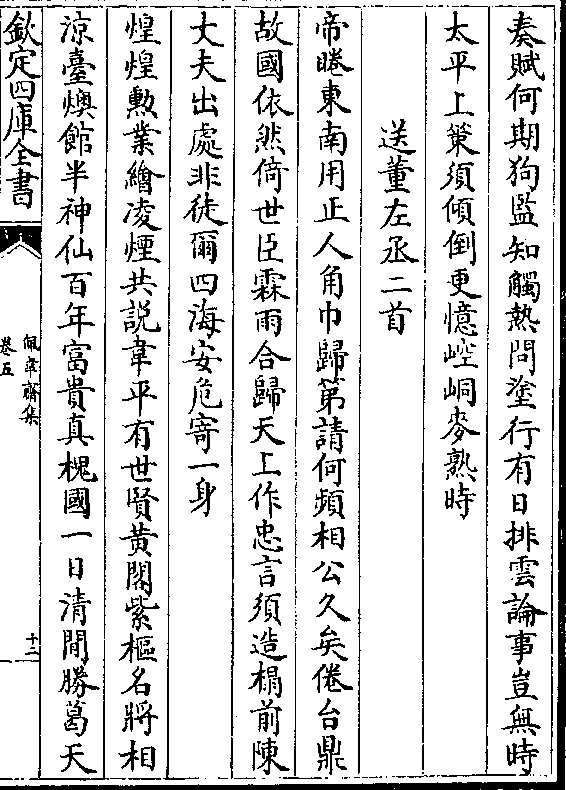 奏賦何期狗監知觸熱問塗行有日排雲論事豈無時
太平上策須傾倒更憶崆峒麥熟時
送董左丞二首
帝睠東南用正人角巾歸第請何頻相公久矣倦台鼎
故國依然倚世臣霖雨合歸天上作忠言須造榻前陳
丈夫出處非徒爾四海安危寄一身
煌煌勲業繪凌煙共説韋平有世賢黄閣紫樞名將相
涼臺燠館半神仙百年富貴真槐國一日清閒勝葛天
欽定四庫全書
佩韋齋集
卷五
十二